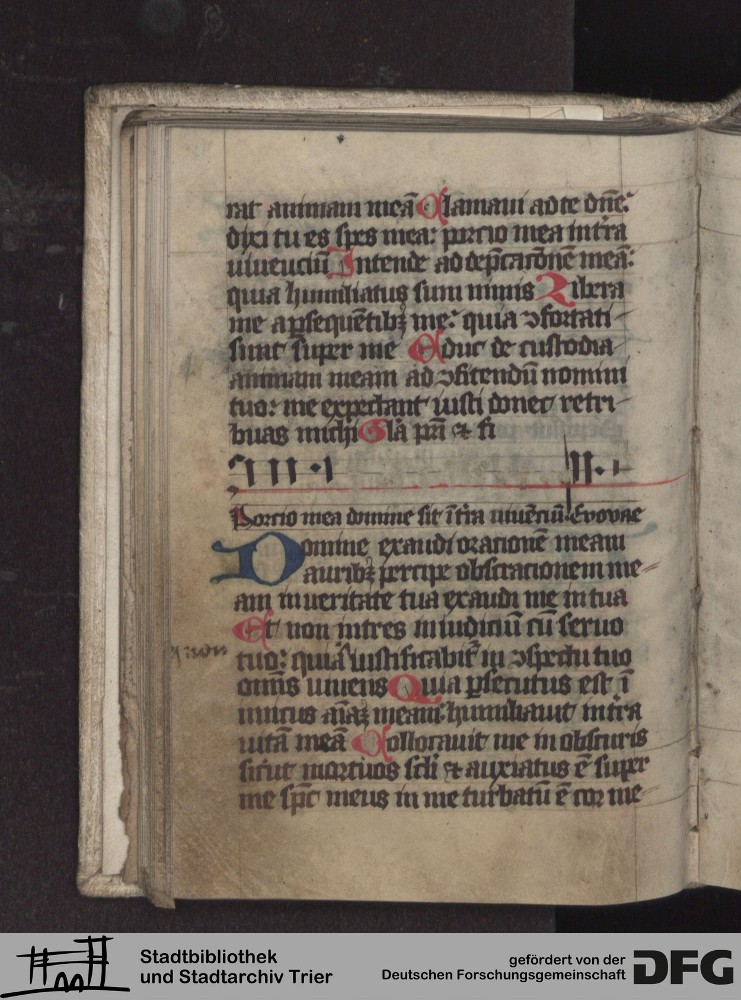 rat animam meā Clamaui ad te dn̄e:
dixi tu es spes mea: porcio mea in tr̄a
uiuenciū Intende ad dep̄caconē meā:
quia humiliatus sum nimis Libera
me a ꝑsequētibꝫ me: quia ↄfortati
sunt super me Educ de custodia
animam meam ad ↄfitendū nomini
tuo: me expectant iusti donec retri-
buas michi Gl̄a pr̄i & fi
Porcio mea domine sit ī tr̄a uiuēciū. Evovae
Domine exaudi orationē meam
auribꝫ percipe obsecracionem me-
am in ueritate tua exaudi me in tua
Et non intres in iudiciū cū seruo
non
tuo: quia iustificabit᷑ in ↄspectu tuo
om̄s uiuens Quia ꝑsecutus est ī
imicus aīaꝫ meam: humiliauit in tr̄a
uitā meā Collocauit me in obscuris
sicut mortuos scl̄i & anxiatus ē super
me sp̄c meus in me turbatū ē cor me-
Stadtbibliothek
und Stadtarchiv Trier
gefördert von der
Deutschen Forschungsgemeinschaft
DFG